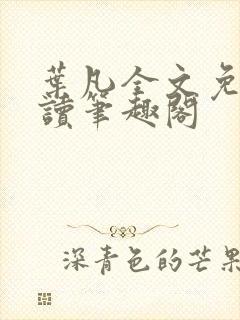 葉凡全文免
讀筆趣閣
深青色的芒果